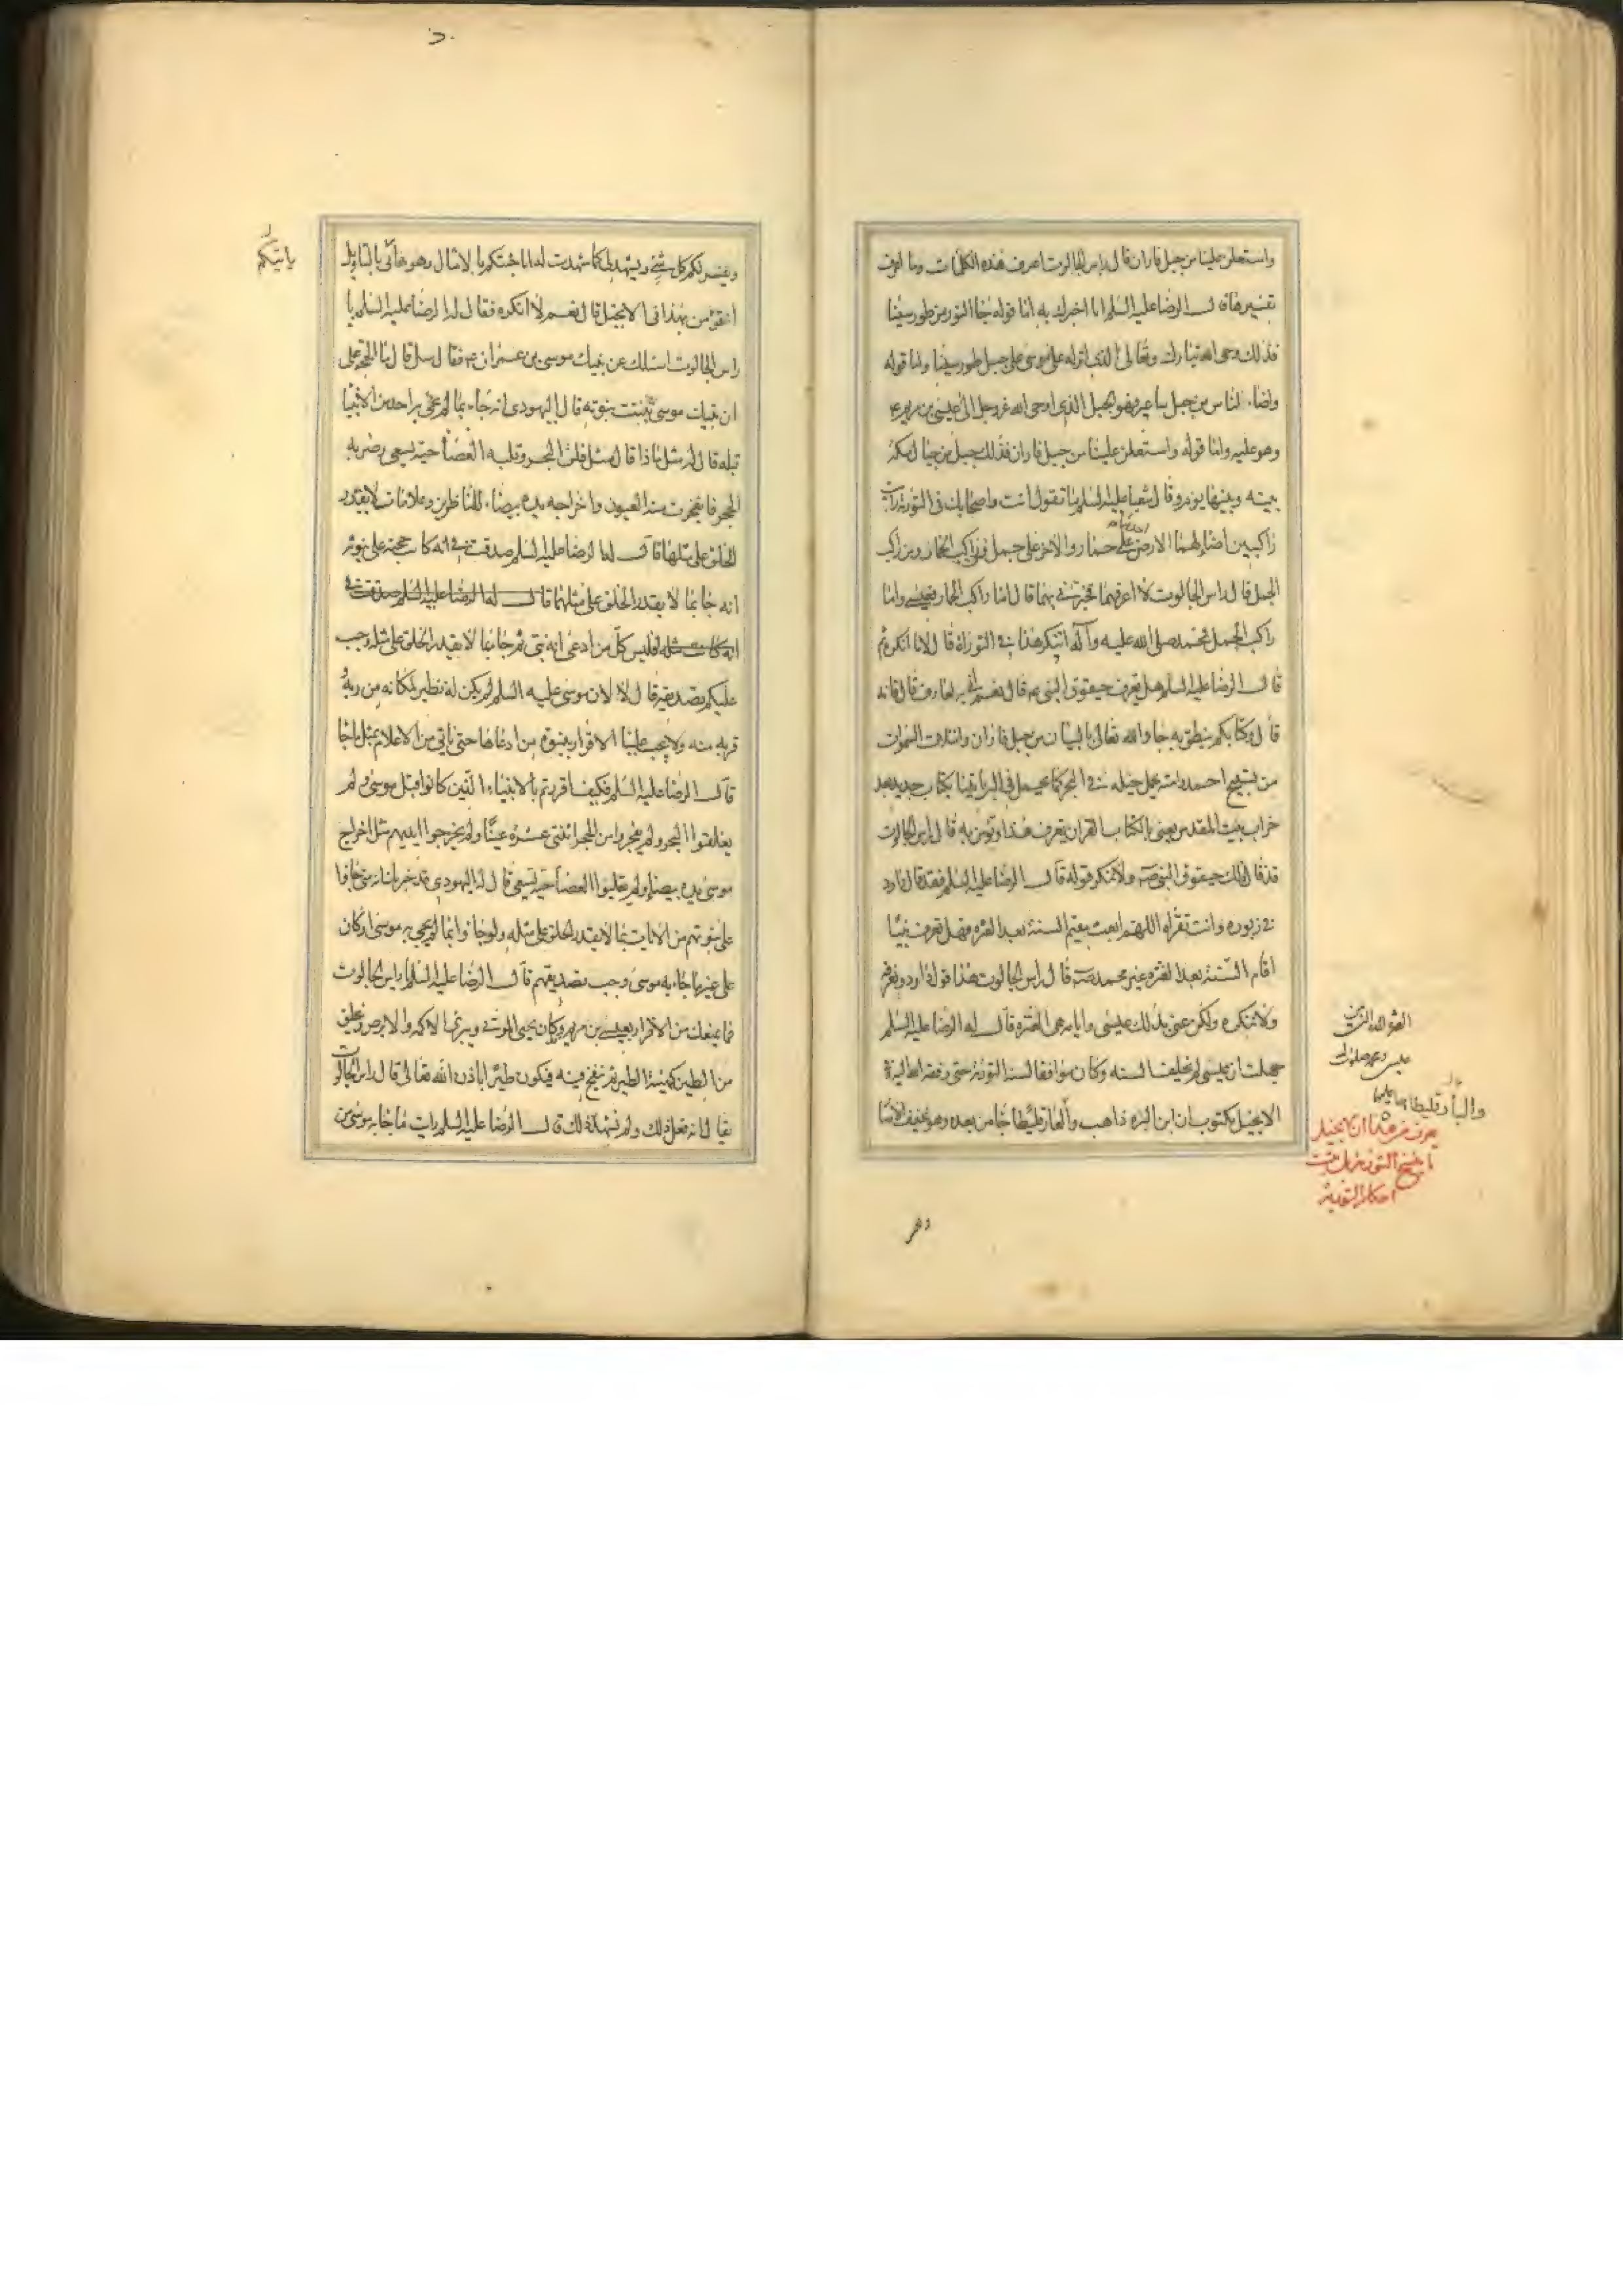 واستعلن علينا من جبل فاران قال راس الجالوت اعرف هذه الكلمات وما اعرف
تفسيرها قال الرضا عليه السلم انا اخبرك به اما قوله جاء النور من طور سينا
فذلك وحى الله تبارك وتعالى الذى انزله على موسى على جبل طور سينا واما قوله
واضاء للناس من جبل ساعير فهو الجبل الذى اوحى الله عز وجل الى عيسى بن مريم ع
وهو عليه واما قوله واستعلن علينا من جبل فاران فذلك جبل من جبال مكة
بينه وبينها يوم وقال شعيا عليه السلم فيما تقول انت واصحابك فى التورية رايت
راكبين اضاء لهما الارض احدهما على حمار والاخر على جمل فمن راكب الحمار ومن راكب
الجمل قال راس الجالوت لا اعرفهما فخبرنى بهما قال اما راكب الحمار فعيسى واما
راكب الجمل فمحمد صلى الله عليه وآله اتنكر هذا فى التوراة قال لا ما انكره ثم
قال الرضا عليه السلم هل تعرف حيقوق النبى ع قال نعم انى به لعارف قال فانه
قال وكتابكم ينطق به جاء الله تعالى بالبيان من جبل فاران وامتلات السموات
من تسبيح احمد وامته يحمل خيله فى البحر كما يحمل فى البر ياتينا بكتاب جديد بعد
خراب بيت المقدس يعنى بالكتاب القران تعرف هذا وتؤمن به قال راس الجالوت
قد قال ذلك حيقوق النبى ص ولا ننكر قوله قال الرضا عليه السلم فقد قال داود
فى زبوره وانت تقراه اللهم ابعث مقيم السنة بعد الفترة فهل تعرف نبيا
اقام السنة بعد الفترة غير محمد ص قال راس الجالوت هذا قول داود نعرفه
ولا ننكره ولكن عنى بذلك عيسى وايامه هى الفترة قال له الرضا عليه السلم
جهلت ان عيسى لم يخالف السنة وكان موافقا لسنة التورية حتى رفعه الله اليه وفى
الانجيل مكتوب ان ابن البرة ذاهب والفارقليطا جاء من بعده وهو يخفف الاصار
والبارقليطا
يعرف من هذا ان الانجيل
ما ينسخ التورية بل بقيت
احكام التورية
ويفسر لكم كل شئ ويشهد لى كما شهدت له انا جئتكم بالامثال وهو ياتى بالتاويل
ياتيكم
اتؤمن بهذا فى الانجيل قال نعم لا انكره فقال له الرضا عليه السلم يا
راس الجالوت اسئلك عن نبيك موسى بن عمران ع فقال سل قال ما الحجة على
ان نبيك موسى ثبتت نبوته قال اليهودى انه جاء بما لم يجئ به احد من الانبيا
قبله قال له مثل ماذا قال مثل فلق البحر وقلبه العصا حية تسعى وضربه
الحجر فانفجرت منه العيون واخراجه يده بيضاء للناظرين وعلامات لا يقدر
الخلق على مثلها قال له الرضا عليه السلم صدقت فى انه كانت حجته على نبوته
انه جاء بما لا يقدر الخلق على مثلها قال له الرضا عليه السلم صدقت فى
انه كانت مثله افليس كل من ادعى انه نبى ثم جاء بما لا يقدر الخلق على مثله وجب
عليكم تصديقه قال لا لان موسى عليه السلم لم يكن له نظير لمكانه من ربه
قربه منه ولا يجب علينا الاقرار بنبوة من ادعاها حتى ياتى من الاعلام بمثل ما جاء
قال الرضا عليه السلم فكيف اقررتم بالانبياء الذين كانوا قبل موسى ولم
يفلقوا البحر ولم يفجروا من الحجر اثنتى عشرة عينا ولم يخرجوا ايديهم مثل اخراج
موسى يده بيضاء ولم يقلبوا العصا حية تسعى قال له اليهودى قد خبرتك انه متى جاؤا
على نبوتهم من الايات بما لا يقدر الخلق على مثله ولو جاؤا بما لم يجئ به موسى او كان
على غير ما جاء به موسى وجب تصديقهم قال الرضا عليه السلم يا راس الجالوت
فما يمنعك من الاقرار بعيسى بن مريم وكان يحيى الموتى ويبرئ الاكمه والابرص ويخلق
من الطين كهيئة الطير ثم ينفخ فيه فيكون طيرا باذن الله تعالى قال راس الجالوت
يقال انه فعل ذلك ولم نشهده قال الرضا عليه السلم ارايت ما جاء به موسى من